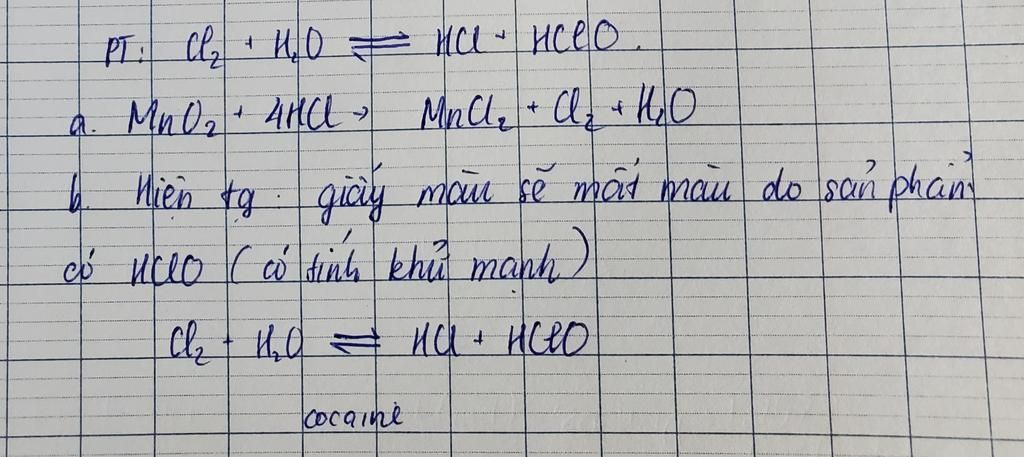 PT: Cl₂ + H₂O ⇌ HCl + HClO.
a. MnO₂ + 4HCl → MnCl₂ + Cl₂ + H₂O
b. Hiện tg: giấy màu sẽ mất màu do sản phẩm
có HClO (có tính khử mạnh)
Cl₂ + H₂O ⇌ HCl + HClO
cocaine